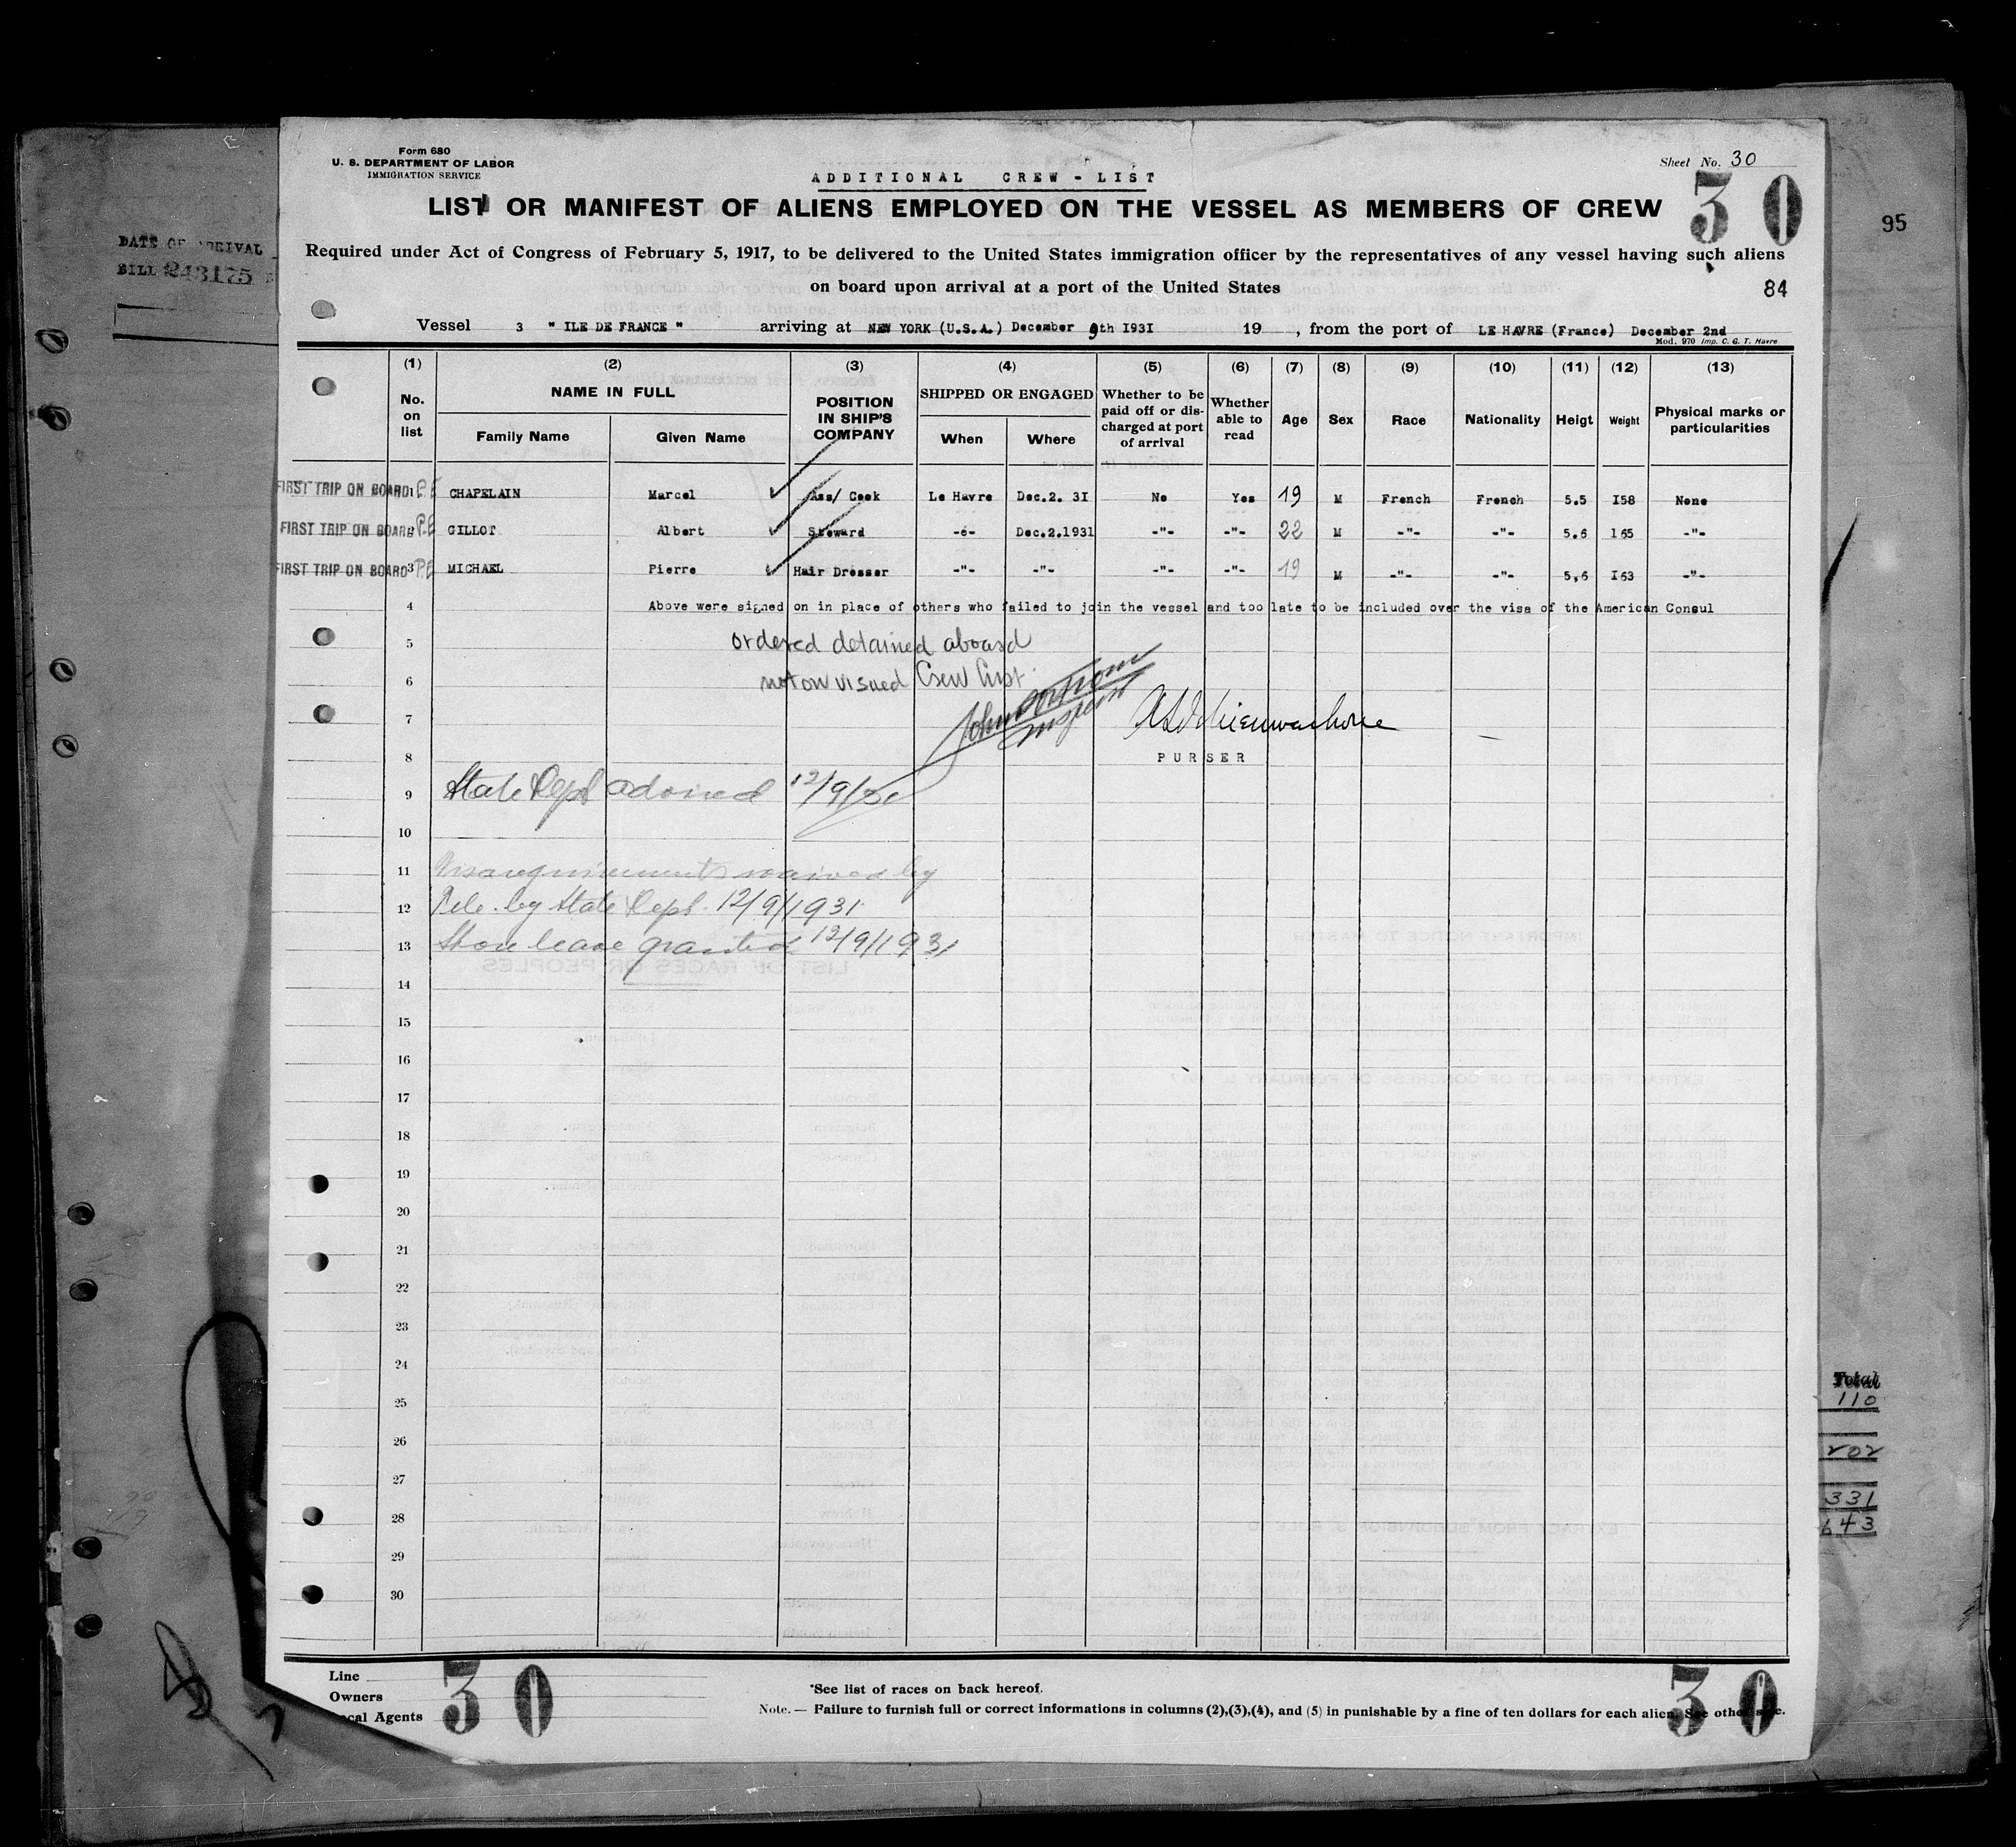 Form 680
U. S. DEPARTMENT OF LABOR
IMMIGRATION SERVICE
ADDITIONAL CREW - LIST
Sheet No. 30
30
LIST OR MANIFEST OF ALIENS EMPLOYED ON THE VESSEL AS MEMBERS OF CREW
95
DATE OF ARRIVAL
BILL 243175
Required under Act of Congress of February 5, 1917, to be delivered to the United States immigration officer by the representatives of any vessel having such aliens
on board upon arrival at a port of the United States
84
Vessel 3 " ILE DE FRANCE " arriving at NEW YORK (U.S.A.) December 9th I93I 19 , from the port of LE HAVRE (France) December 2nd
Mod. 970 Imp. C. G. T. Havre
(1) (2) (3) (4) (5) (6) (7) (8) (9) (10) (11) (12) (13)
No. on list NAME IN FULL Family Name Given Name POSITION IN SHIP'S COMPANY SHIPPED OR ENGAGED When Where Whether to be paid off or discharged at port of arrival Whether able to read Age Sex Race Nationality Heigt Weight Physical marks or particularities
FIRST TRIP ON BOARD 1 P.E CHAPELAIN Marcel Ass/ Cook Le Havre Dec.2. 3I No Yes 19 M French French 5.5 I58 None
FIRST TRIP ON BOARD 2 P.E GILLOT Albert Steward -e- Dec.2.1931 -"- -"- 22 M -"- -"- 5.6 165 -"-
FIRST TRIP ON BOARD 3 P.E MICHAEL Pierre Hair Dresser -"- -"- -"- -"- 19 M -"- -"- 5,6 I63 -"-
4 Above were signed on in place of others who failed to join the vessel and too late to be included over the visa of the American Consul
5 ordered detained aboard
6 not on visaed Crew List
7
Inspector
8 PURSER
9 State Dept advised 12/9/31
10
11 Visa requirements waived by
12 Tele. by State Dept. 12/9/1931
13 Shore leave granted 12/9/1931
14
15
16
17
18
19
20
21
22
23
24
25
26
27
28
29
30
Total
110
202
331
643
Line
Owners
Local Agents
30
*See list of races on back hereof.
Note.— Failure to furnish full or correct informations in columns (2),(3),(4), and (5) in punishable by a fine of ten dollars for each alien. See other side.
30